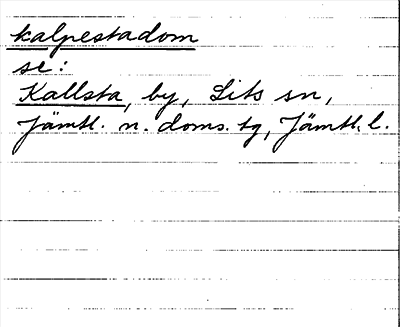 kalpestadom
se:
Kallsta, by, Lits sn,
Jämtl. n. doms. tg, Jämtl. l.